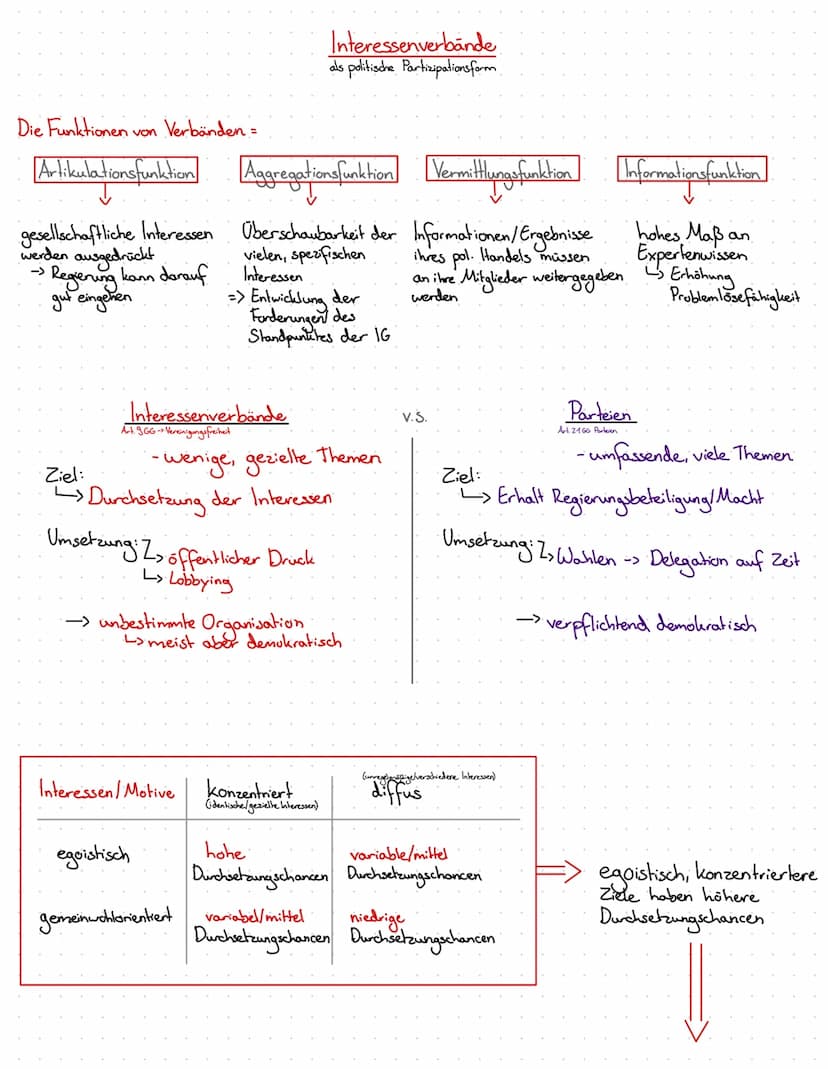 Interessenverbände
als politische Partizipationsform
Die Funktionen von Verbänden =
Artikulationsfunktion
gesellschaftliche Interessen
werden ausgedrückt
→ Regierung kann darauf
gut eingehen
Aggregationsfunktion
Überschaubarkeit der
vielen, spezifischen
Interessen
=> Entwicklung der
Forderungen/des
Standpunktes der IG
Vermittlungsfunktion
Informationen/Ergebnisse
ihres pol. Handels müssen
an ihre Mitglieder weitergegeben
werden
Informationsfunktion
hohes Maß an
Expertenwissen
↳ Erhöhung
Problemlösefähigkeit
Interessenverbände
Art. 9 GG → Vereinigungsfreiheit
- wenige, gezielte Themen
Ziel:
↳ Durchsetzung der Interessen
Umsetzung:
↳ öffentlicher Druck
↳ Lobbying
→ unbestimmte Organisation
↳ meist aber demokratisch
v.s.
Parteien
Art. 21 GG Parteien
- umfassende, viele Themen
Ziel:
↳ Erhalt Regierungsbeteiligung/Macht
Umsetzung: ↳ Wahlen -> Delegation auf Zeit
→ verpflichtend demokratisch
Interessen/Motive
konzentriert
(identische/gezielte Interessen)
(unregelmäßige/verschiedene Interessen)
diffus
egoistisch
hohe
Durchsetzungschancen
variable/mittel
Durchsetzungschancen
gemeinwohlorientiert
variabel/mittel
Durchsetzungschancen
niedrige
Durchsetzungschancen
egoistisch, konzentriertere
Ziele haben höhere
Durchsetzungschancen